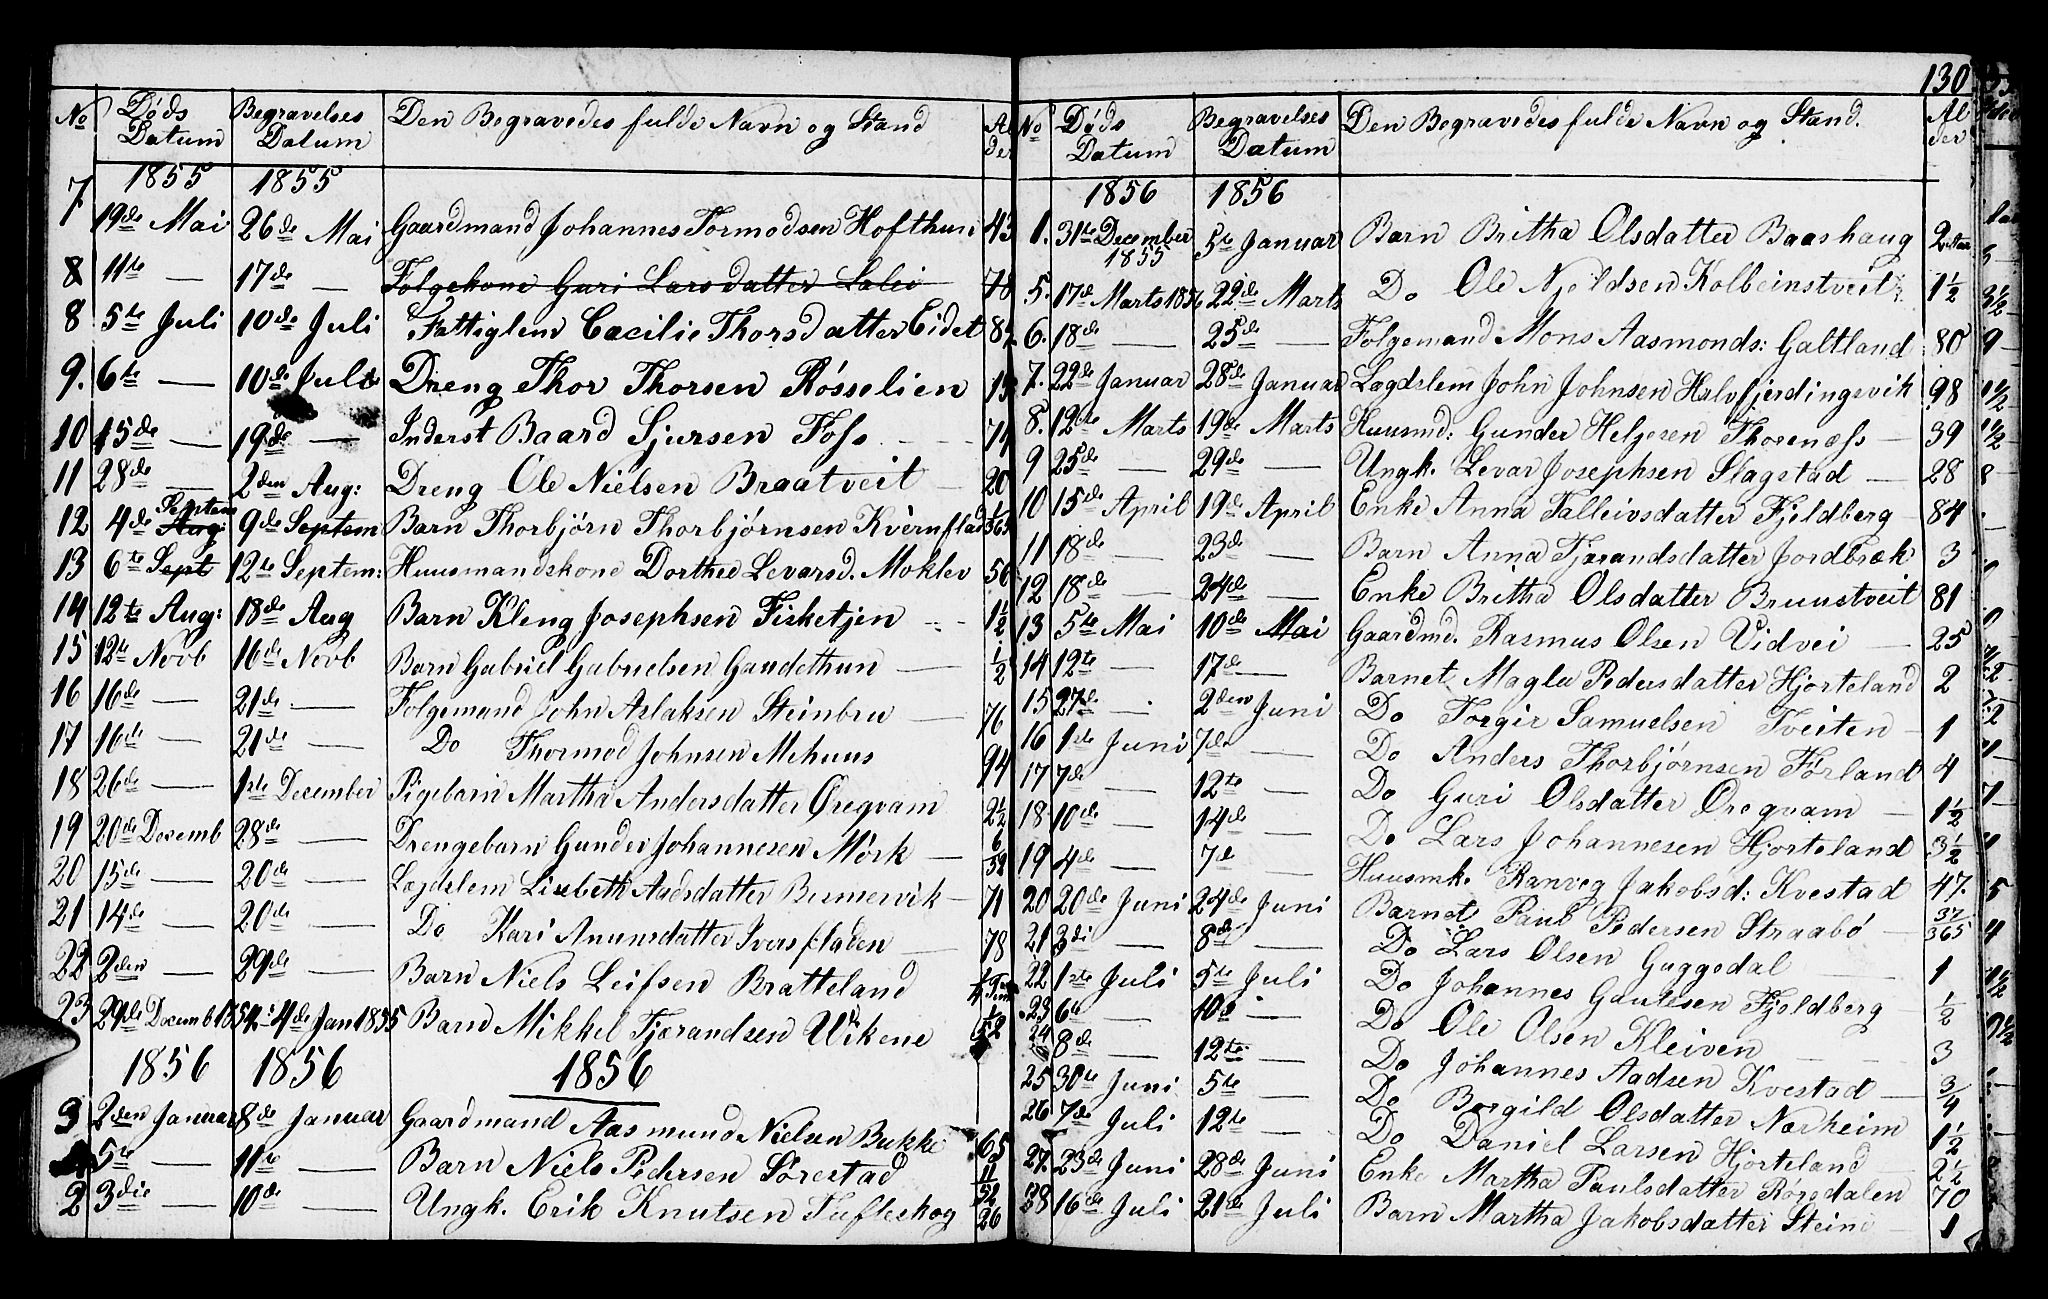 No Døds Datum Begravelses Datum Den Begravedes fulde Navn og Stand Alder
1855 1855
7 19de Mai 26de Mai Gaardmand Johannes Tormodsen Hofthun 43
8 11te — 17de — Folgekone Guri Larsdatter Lalei 78
8 5te Juli 10de Juli Fattiglem Cæcilie Thorsdatter Eidet
9. 6te — 10de Juli Dreng Thor Thorsen Røsselien
10 15de — 19de — Inderst Baard Sjursen Foss
11 28de — 2den Aug: Dreng Ole Nielsen Braatveit — 20
12 4de Aug Septem 9de Septem Barn Thorbjørn Thorbjørnsen Kvernflad
13 6te Sept 12te Septem: Huusmandskone Dorthea Levarsd. Moklev 56
14 12te Aug: 18de Aug Barn Kleng Josephsen Fisketjen 1½
15 12te Novb 16de Novb Barn Gabriel Gabrielsen Gaudethun — ½
16 16de — 21de — Folgemand John Aslaksen Steinbru — 76
17 16de — 21de — Do Thormod Johnsen Mehuus 94
18 26de — 1ste December Pigebarn Martha Andersdatter Øregvam 2½
19 20de Decemb 28de — Drengebarn Gunder Johannesen Mørk — 6/52
20 15de — 20de — Lægdslem Lisbeth Aadsdatter Bermervik — 71
21 14de — 20de — Do Kari Amunsdatter Iversfladen — 78
22 2den — 29de — Barn Niels Leifsen Bratteland
23 29de Decemb 1854 4de Jan 1855 Barn Mikkel Tjærandsen Vikene
1856 1856 1856
3 2den Januar 8de Januar Gaardmand Aasmund Nielsen Bukke 65
5te — 11te — Barn Niels Pedersen Sørestad 11/52
2 3die — 10de — Ungk. Erik Knutsen Tufteskog 26
130
No Døds Datum Begravelses Datum Den Begravedes fulde Navn og Stand. Alder
1856 1856
1. 31te December 1855 5te Januar Barn Britha Olsdatter Baashaug 2
5. 17de Marts 1856 22de Marts Do Ole Njeldsen Kolbeinstveit 1½
6. 18de — 25de — Folgemand Mons Aasmonds: Galtland 80
7. 22de Januar 28de Januar Lægdslem John Johnsen Halvfjerdingsvik 98
8. 12te Marts 19de Marts Huusmd: Gunder Helgesen Thorenæss — 39
9 25de — 29de — Ungk. Levar Josephsen Slagstad — 28
10 15de April 19de April Enke Anna Talleivsdatter Fjeldberg — 84
11 18de — 23de — Barn Anna Tjærandsdatter Jordbræk 3
12 18de — 24de — Enke Britha Olsdatter Bruustveit 81
13 5te Mai 10de Mai Gaardmd. Rasmus Olsen Vidvei — 25
14 12te — 17de — Barnet Magla Pedersdatter Hjorteland 2
15 27de — 2den Juni Do Torgir Samuelsen Tveiten — 1
16 1de Juni 7de — Do Anders Thorbjørnsen Førland 4
17 7de — 12te — Do Guri Olsdatter Øregvam — 1½
18 10de — 14de — Do Lars Johannesen Hjorteland 3½
19 4de — 7de — Huusmk. Ranveg Jakobsd: Kvestad 47.
20 20de Juni 24de Juni Barnet Paul Pedersen Straabø — 37/365
21 3di — 8de — Do Lars Olsen Guggedal — 1
22 1ste Juli 5te Juli Do Johannes Gautesen Fjeldberg — ½
23 6te — 10de — Do Ole Olsen Kleiven — 3
24 8de — 12te — Do Johannes Aadsen Kvestad — 3/4
25 30te Juni 5te — Do Borgild Olsdatter Nærheim 1½
26 7de Juli 12te — Do Daniel Larsen Hjorteland — 2½
27. 23de Juni 28de Juni Enke Martha Paulsdatter Rørsdalen 70
28 16de Juli 21de Juli Barn Martha Jakobsdatter Steine — 1